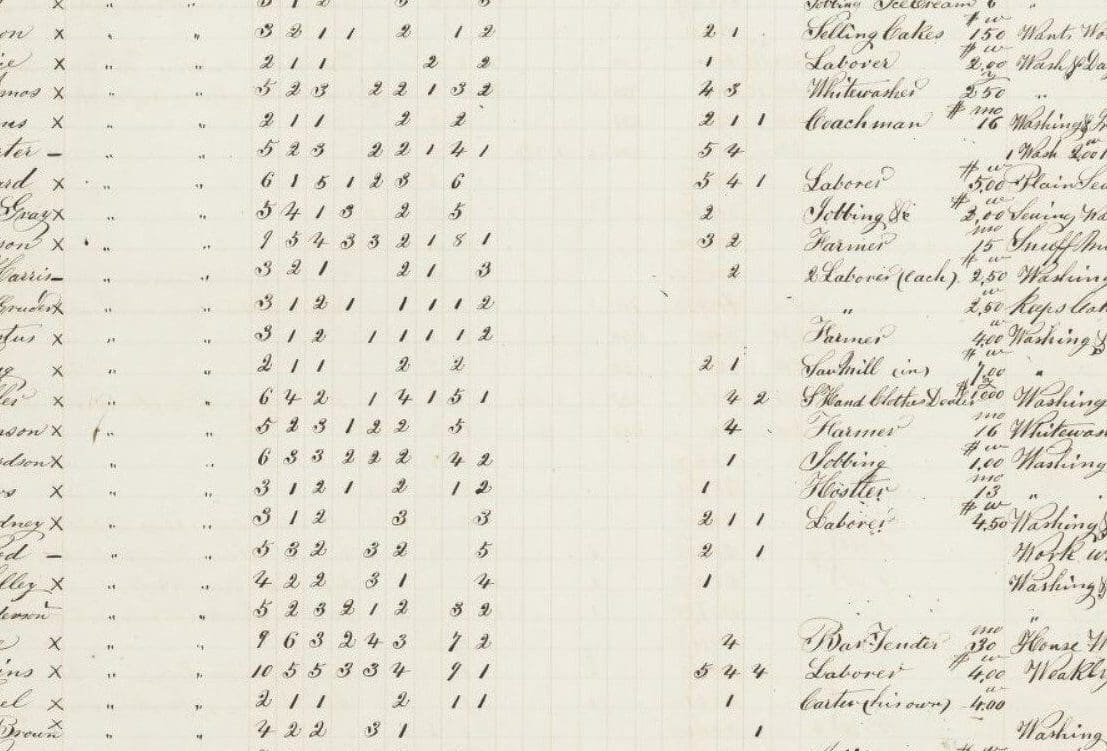 Jobbing Ice Cream 6 "
on x " " 3 2 1 1 2 1 2 2 1 Selling Cakes $ w 150 Wants Wo
ie x " " 2 1 1 2 2 1 Laborer $ w 2.00 Wash & Da
mos x " " 5 2 3 2 2 1 3 2 4 3 Whitewasher 2 50 "
us x " " 2 1 1 2 2 2 1 1 Coachman $ mo 16 Washing &
ter – " " 5 2 3 2 2 1 4 1 5 4 1 Wash 2.00
ard x " " 6 1 5 1 2 3 6 5 4 1 Laborer $ w 5.00 Plain Se
Gray x " " 5 4 1 3 2 5 2 Jobbing &c $ w 3.00 Sewing Wa
son x " " 9 5 4 3 3 2 1 8 1 3 2 Farmer mo 15 Snuff
Harris – " " 3 2 1 2 1 3 2 2 Laborers (each) $ w 2,50 Washing
Gruder x " " 3 1 2 1 1 1 1 2 " w 2,50 Keeps
tus x " " 3 1 2 1 1 1 1 2 Farmer w 4.00 Washing &
g x " " 2 1 1 2 2 2 1 Saw Mill (in) $ w 7,00 "
ler x " " 6 4 2 1 4 1 5 1 4 2 S Hand Clothes Dealer $ 1000 Washing
nson x " " 5 2 3 1 2 2 5 4 Farmer mo 16 Whitewas
rdson x " " 6 3 3 2 2 2 4 2 1 Jobbing $ w 1,00 Washing
rs x " " 3 1 2 1 2 1 2 1 Hostler mo 13 " "
dney x " " 3 1 2 3 3 2 1 1 Laborer $ w 4.50 Washing &
ed – " " 5 3 2 3 2 5 2 1 Work w
lley x " " 4 2 2 3 1 4 1 Washing &
terson " " 5 2 3 2 1 2 3 2 "
e x " " 9 6 3 2 4 3 7 2 4 Bar Tender mo 30 House W
ins x " " 10 5 5 3 3 4 9 1 5 4 4 Laborer $ w 4,00 Weakly
el x " " 2 1 1 2 1 1 1 Carter (his own) w 4.00
Brown x " " 4 2 2 3 1 1 Washing